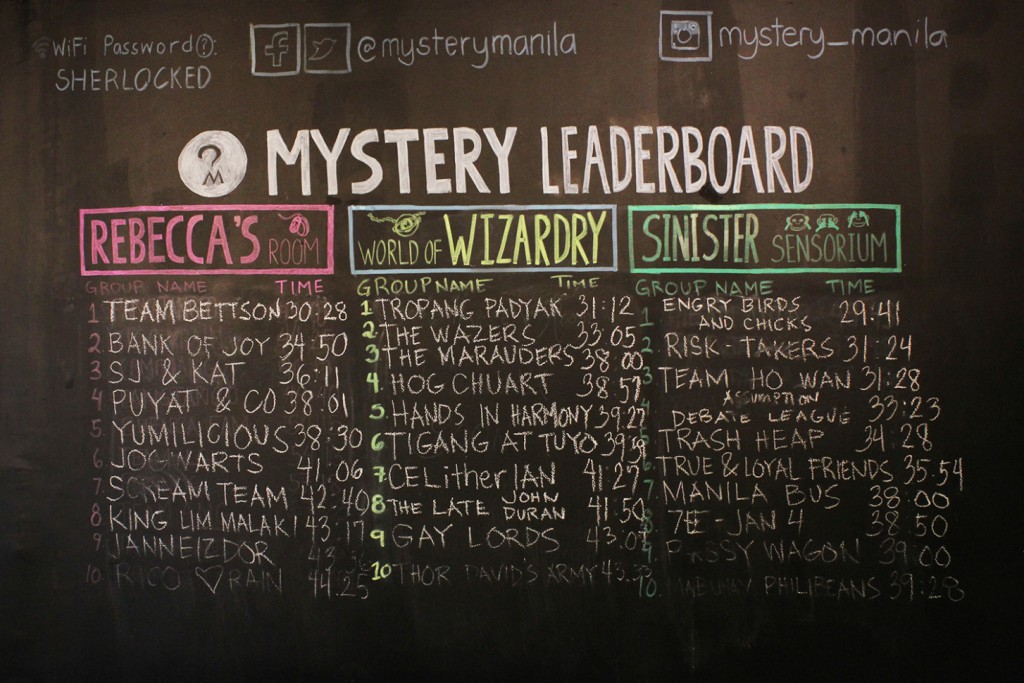 WiFi Password?:
SHERLOCKED
@mysterymanila
mystery_manila
? M
MYSTERY LEADERBOARD
REBECCA'S ROOM
GROUP NAME TIME
1 TEAM BETTSON 30:28
2. BANK OF JOY 34:50
3 SJ & KAT 36:11
4 PUYAT & CO 38:01
5. YUMILICIOUS 38:30
6. JOGWARTS 41:06
7. SCREAM TEAM 42:40
8 KING LIM MALAKI 43:17
9 JANNEIZDOR
10. RICO ♡ RAIN 44:25
WORLD OF WIZARDRY
GROUP NAME TIME
1 TROPANG PADYAK 31:12
2. THE WAZERS 33:05
3 THE MARAUDERS 38:00
4. HOG CHUART 38:57
5. HANDS IN HARMONY 39:27
6 TIGANG AT TUYO
7. CELitherIAN 41:27
8 THE LATE JOHN DURAN 41:50
9 GAY LORDS
10 THOR DAVID'S ARMY
SINISTER SENSORIUM
GROUP NAME TIME
1 ENGRY BIRDS
AND CHICKS 29:41
2. RISK-TAKERS 31:24
3 TEAM HO WAN 31:28
4 ASSUMPTION
DEBATE LEAGUE 33:23
5 TRASH HEAP 34:28
6 TRUE & LOYAL FRIENDS 35:54
7. MANILA BUS 38:00
8. 7E-JAN 4 38:50
9 WAGON 39:00
10. PHILIBEANS 39:28